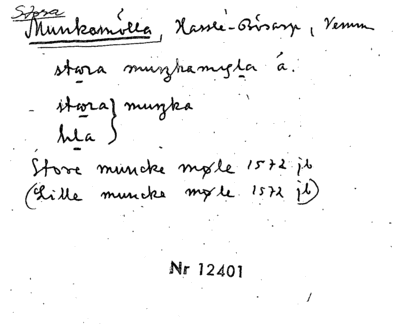 Stora
Munkamölla, Hassle-Bösarp, Vemm
stora munkamyla å.
stora } munka
lila
Store muncke møle 1572 jb
(Lille muncke møle 1572 jb)
Nr 12401